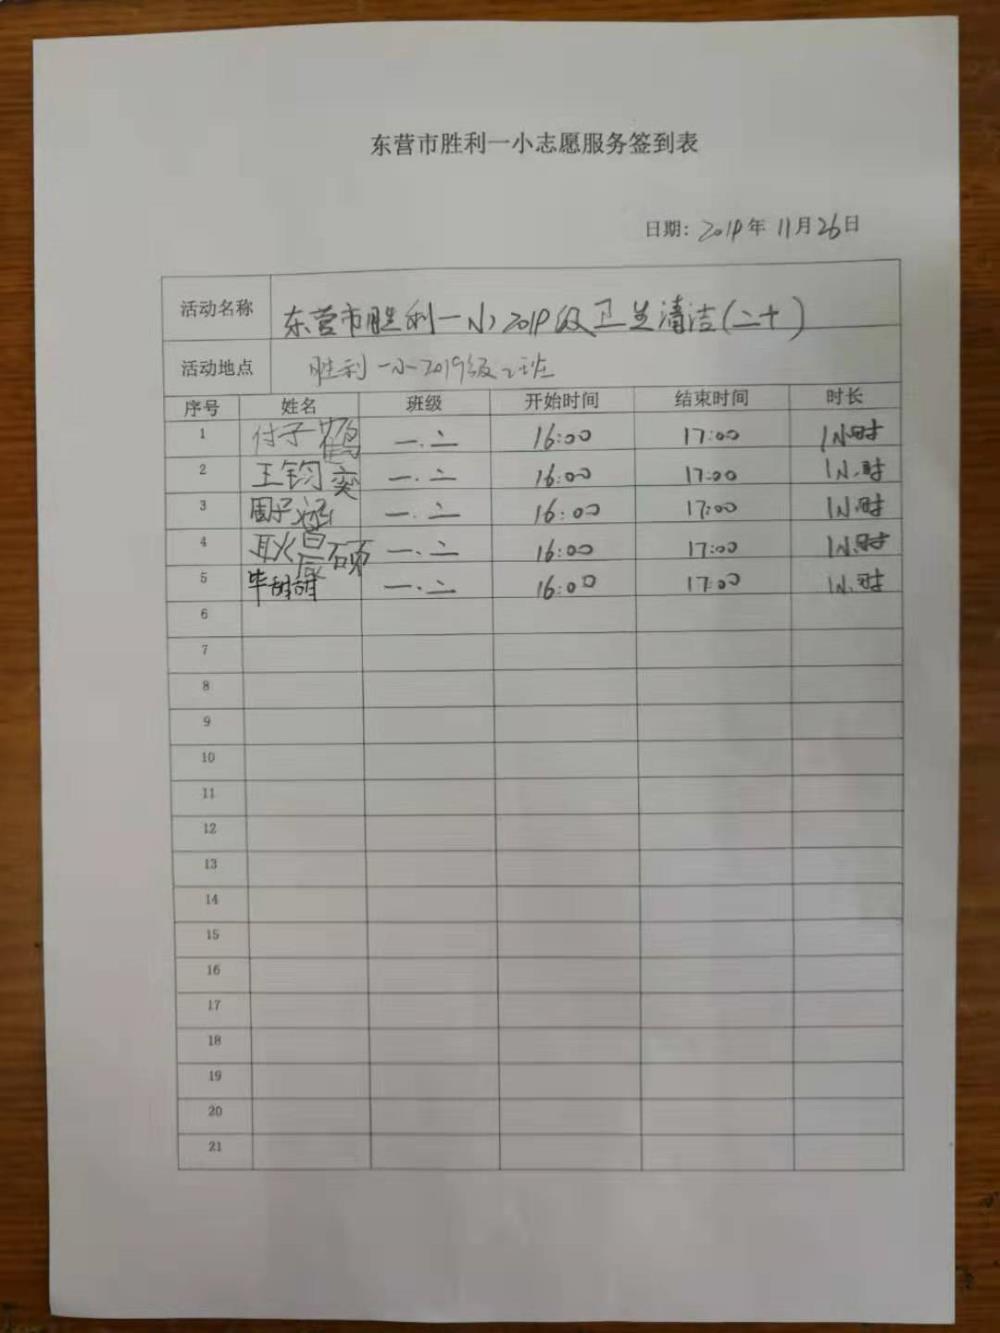 东营市胜利一小志愿服务签到表
日期: 2019年 11月26日
活动名称 东营市胜利一小2019级卫生清洁(二十)
活动地点 胜利一小2019级2班
序号 姓名 班级 开始时间 结束时间 时长
1 付子 一.二 16:00 17:00 1小时
2 王钧奕 一.二 16:00 17:00 1小时
3 周子涵 一.二 16:00 17:00 1小时
4 耿晨硕 一.二 16:00 17:00 1小时
5 毕 一.二 16:00 17:00 1小时
6
7
8
9
10
11
12
13
14
15
16
17
18
19
20
21